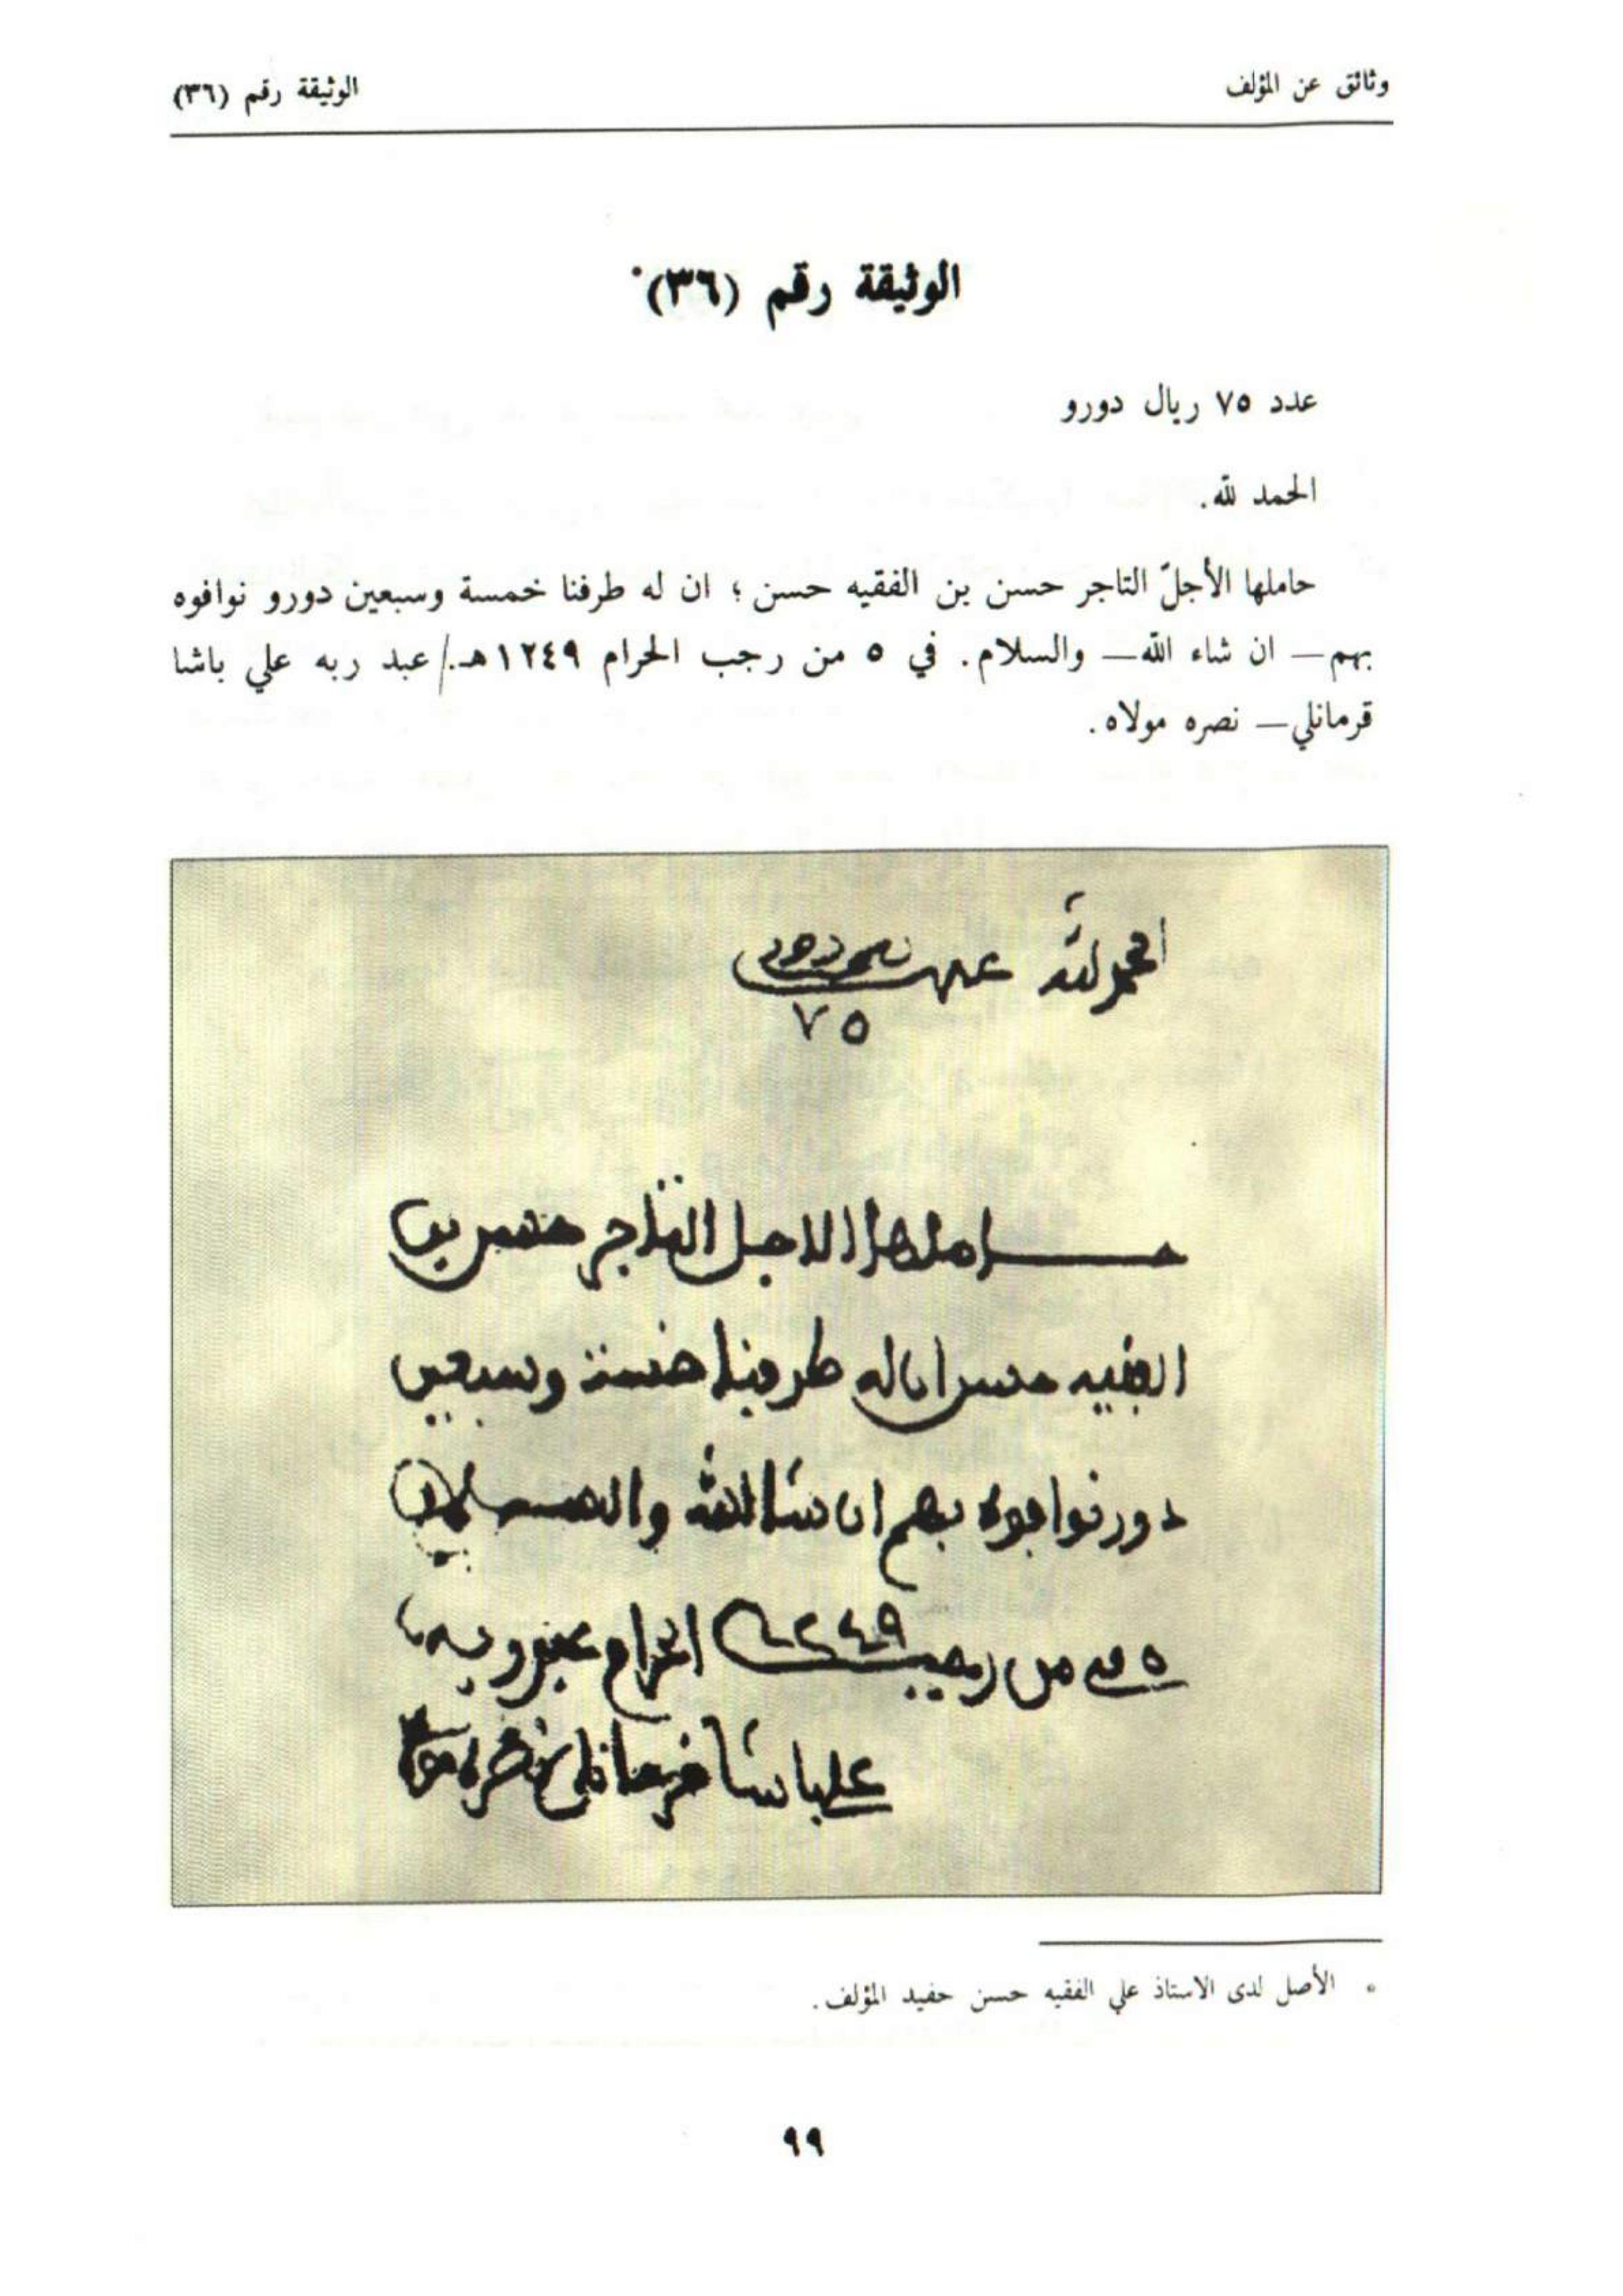 وثائق عن المؤلف
الوثيقة رقم (٣٦)
الوثيقة رقم (٣٦)*
عدد ٧٥ ريال دورو
الحمد لله.
حاملها الأجلّ التاجر حسن بن الفقيه حسن ؛ ان له طرفنا خمسة وسبعين دورو نوافوه
بهم — ان شاء الله — والسلام. في ٥ من رجب الحرام ١٢٤٩هـ./ عبد ربه علي باشا
قرمانلي — نصره مولاه.
الحمد لله
٧٥
حاملها الاجل التاجر حسن بن
الفقيه حسن ان له طرفنا خمسة وسبعين
دورو نوافوه بهم ان شا الله والسلام
٥ في من رجب ١٢٤٩ الحرام عبد ربه
علي باشا قرمانلي نصره مولاه
* الأصل لدى الاستاذ علي الفقيه حسن حفيد المؤلف.
٩٩